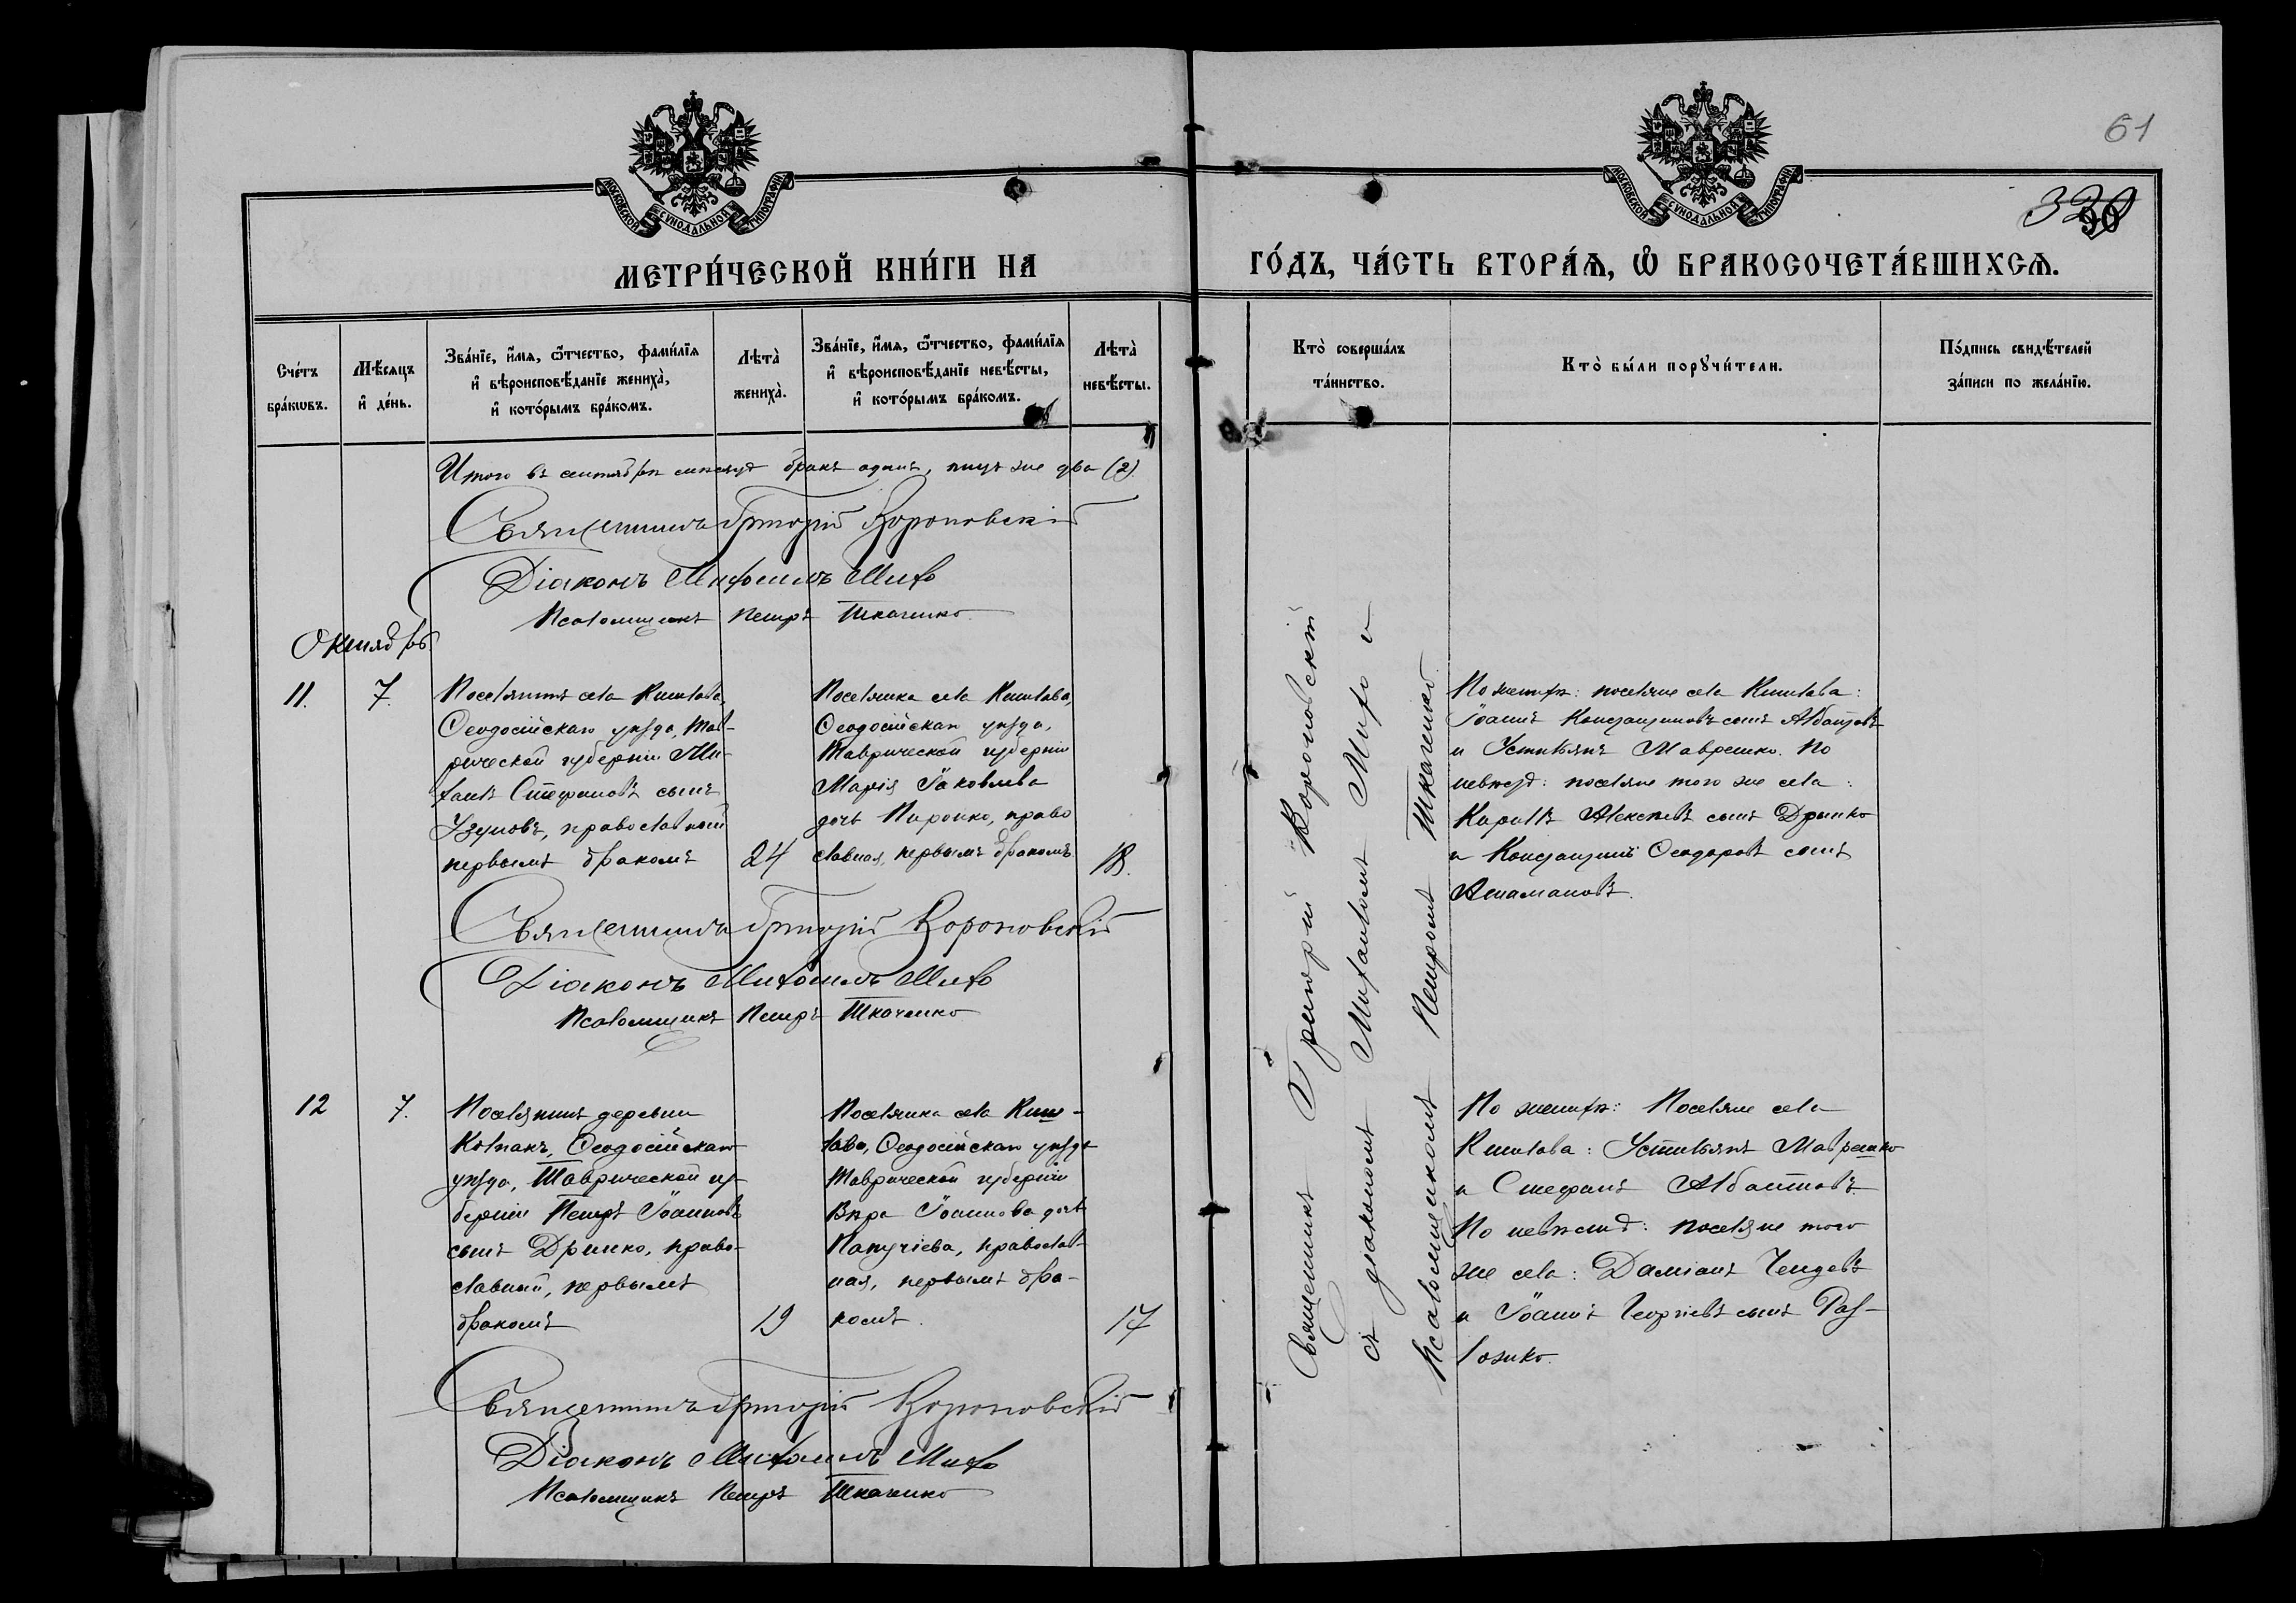 61
330
МОСКОВСКОЙ СѴНОДАЛЬНОЙ ТИПОГРАФІИ
МОСКОВСКОЙ СѴНОДАЛЬНОЙ ТИПОГРАФІИ
МЕТРИ́ЧЕСКОЙ КНИ́ГИ НА
ГО́ДЪ, ЧА́СТЬ ВТОРА́Ѧ, Ѡ҆ БРАКОСОЧЕТА́ВШИХСѦ.
Сче́тъ
бра́кѡвъ.
Мѣ́сяцъ
и҆ де́нь.
Зва́нїе, и҆́мѧ, ѻ҆́тчество, фами́лїѧ
и҆ вѣроисповѣ́данїе жениха̀,
и҆ кото́рымъ бра́комъ.
Лѣта̀
жениха̀.
Зва́нїе, и҆́мѧ, ѻ҆́тчество, фами́лїѧ
и҆ вѣроисповѣ́данїе невѣ́сты,
и҆ кото́рымъ бра́комъ.
Лѣта̀
невѣ́сты.
Кто̀ соверша́лъ
та́инство.
Кто̀ бы́ли порꙋчи́тели.
По́дпись свидѣ́телей
за́писи по жела́нїю.
Итого въ сентябрѣ мѣсяцѣ бракъ одинъ, лицъ же два (2)
Священникъ Григорій Вороновскій
Діаконъ Михаилъ Михо
Псаломщикъ Петръ Ткаченко
Октябрь
11.
7.
Поселянинъ села Кишлава,
Ѳеодосійскаго уѣзда, Тав-
рической губерніи Ми-
хаилъ Стефановъ сынъ
Узуновъ, православный
первымъ бракомъ
24
Поселянка села Кишлава,
Ѳеодосійскаго уѣзда,
Таврической губерніи
Марія Іаковлева
дочь Пиронко, право
славная, первымъ бракомъ
18.
Священникъ Григорій Вороновскій
съ діакономъ Михаиломъ Михо и
Псаломщикомъ Петромъ Ткаченко.
По женихѣ: поселяне села Кишлава:
Іоаннъ Константиновъ сынъ Албантовъ
и Устиліянъ Мавренко. По
невѣстѣ: поселяне того же села:
Кириллъ Алексѣевъ сынъ Дринко
и Константинъ Ѳеодоровъ сынъ
Атамановъ.
Священникъ Григорій Вороновскій
Діаконъ Михаилъ Михо
Псаломщикъ Петръ Ткаченко
12
7.
Поселянинъ деревни
Колпакъ, Ѳеодосійскаго
уѣзда, Таврической гу-
берніи Петръ Іоанновъ
сынъ Дринко, право-
славный, первымъ
бракомъ
19
Поселянка села Киш-
лава, Ѳеодосійскаго уѣзда
Таврической губерніи
Вѣра Іоаннова дочь
Папучіева, православ-
ная, первымъ бра-
комъ.
17
По женихѣ: Поселяне села
Кишлава: Устиліянъ Мавренко
и Стефанъ Албантовъ.
По невѣстѣ: поселяне того
же села: Даміанъ Чендевъ
и Іоаннъ Георгіевъ сынъ
Священникъ Григорій Вороновскій
Діаконъ Михаилъ Михо
Псаломщикъ Петръ Ткаченко